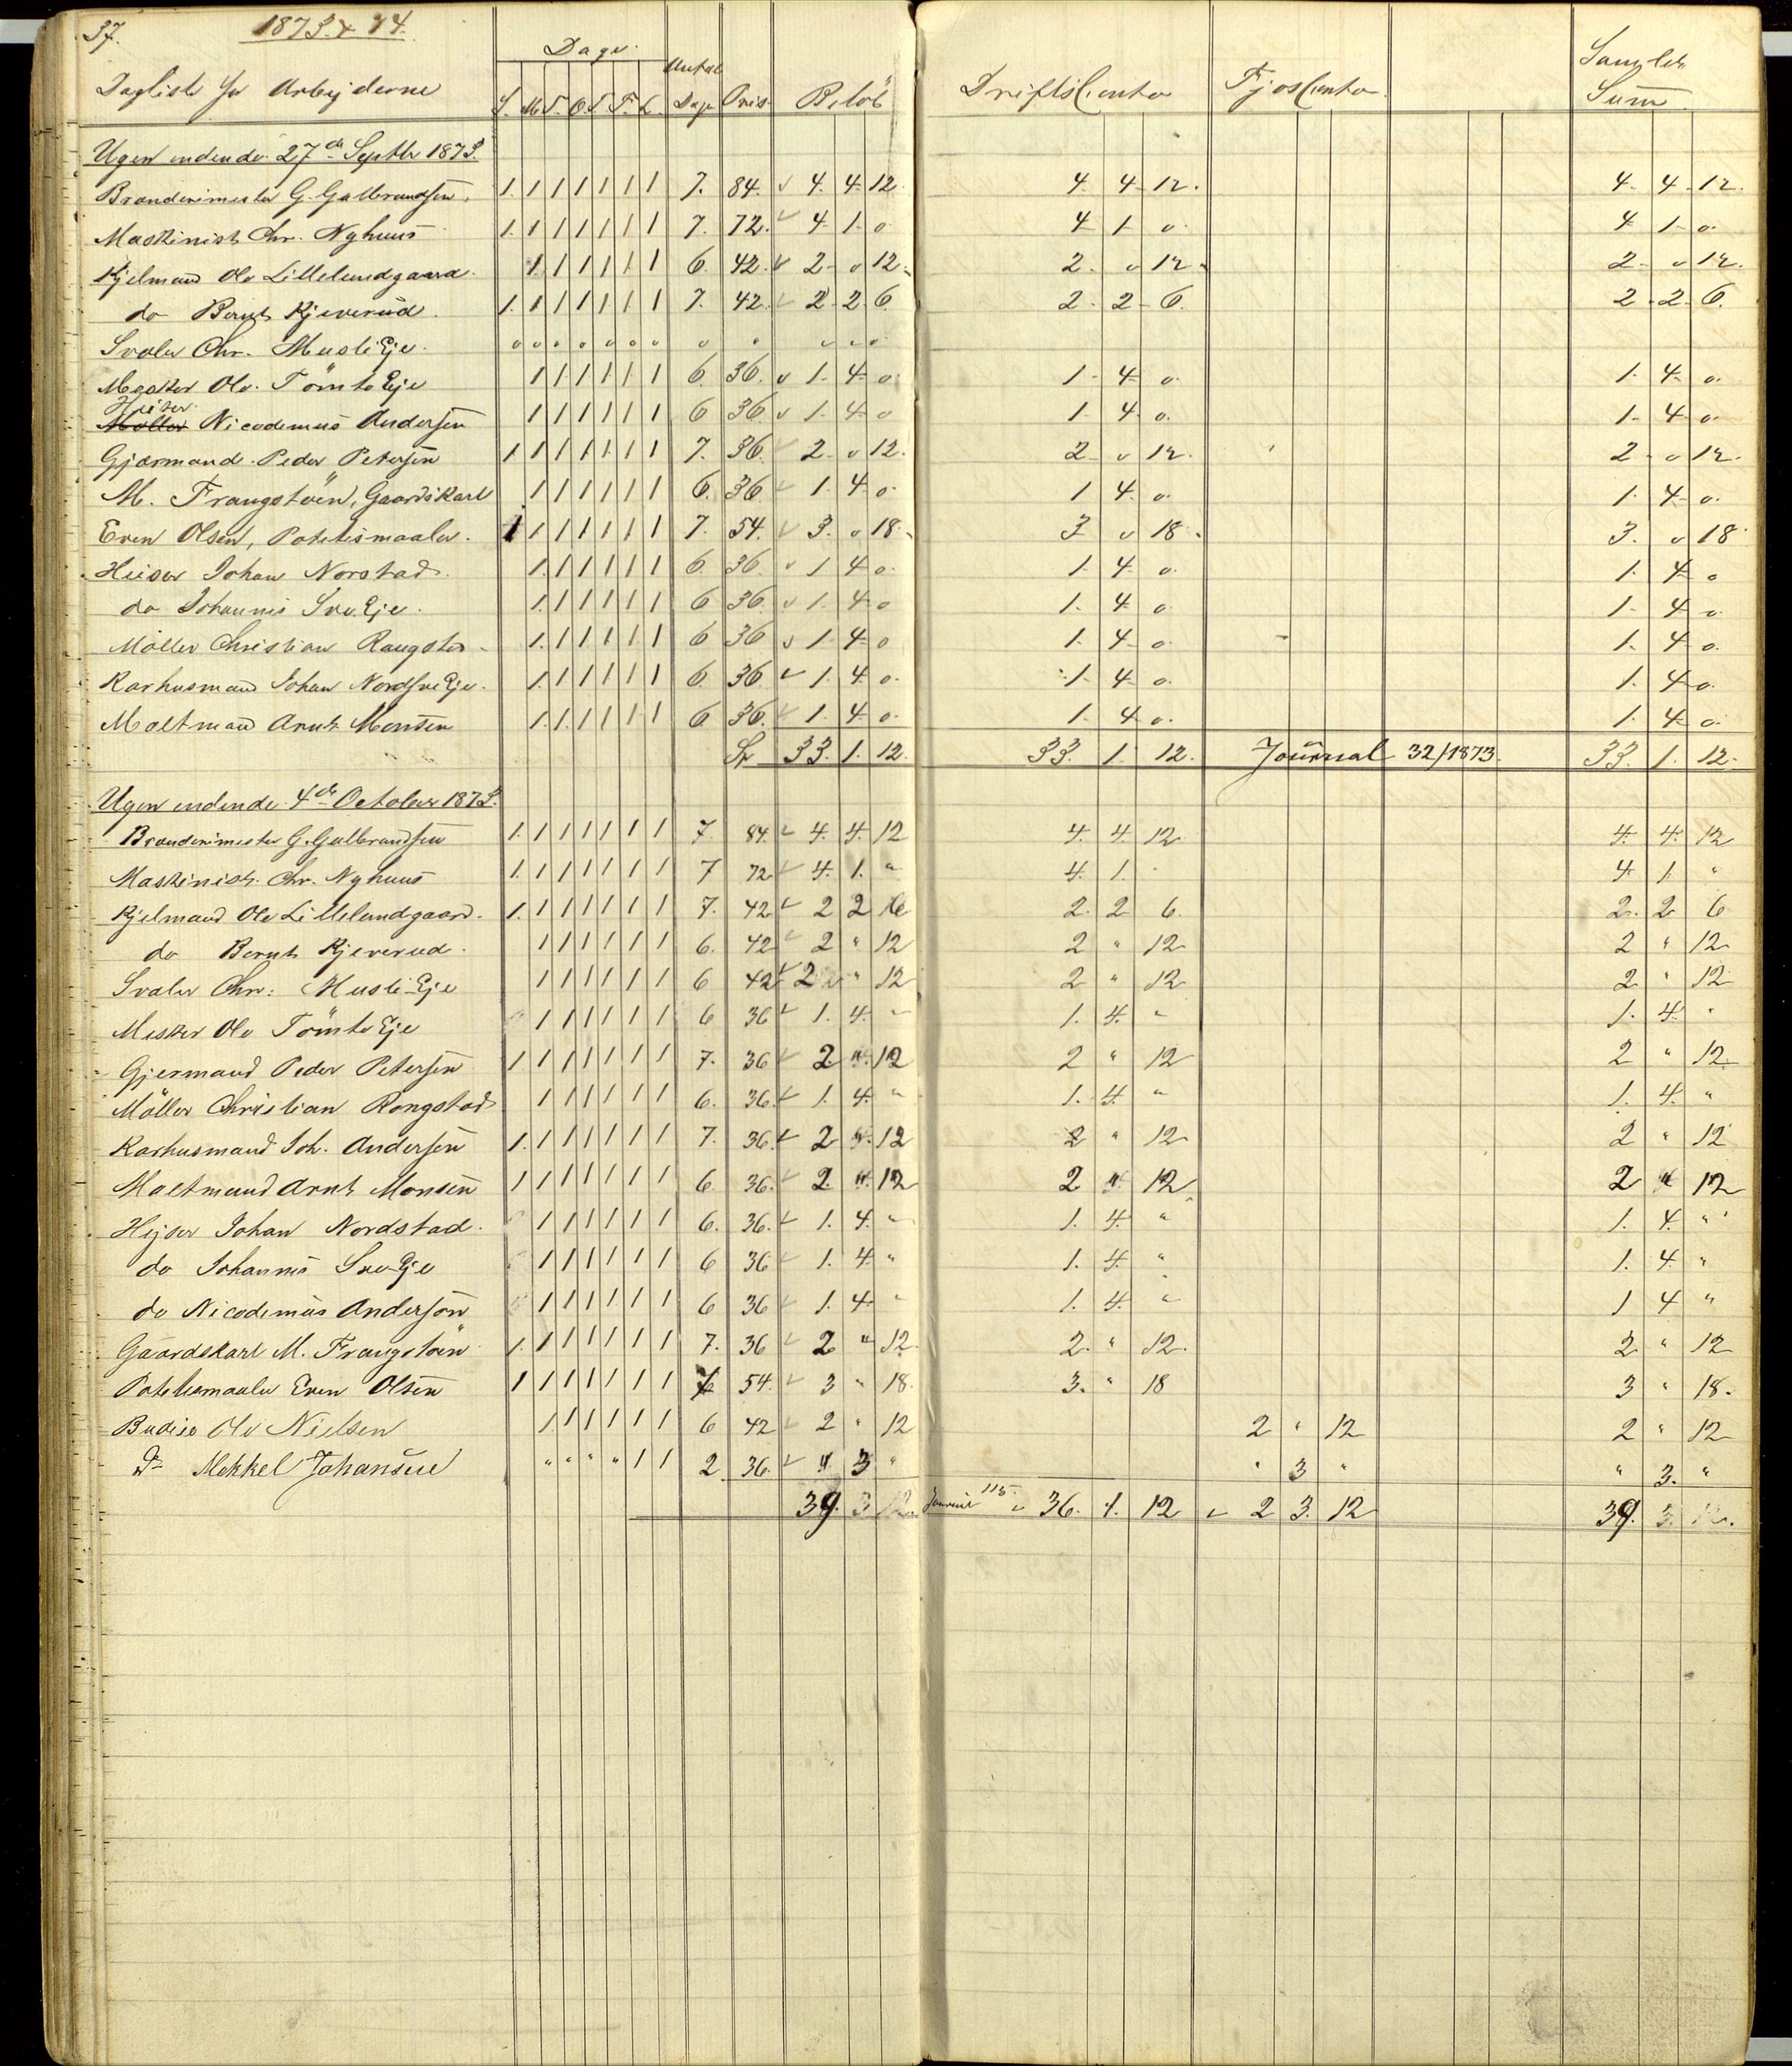 37. 1873 & 74.
Dagliste for Arbejderne S. M. T. O. T. F. L. Dage Antal Dage Pris Beløb Drifts Conto Fjøs Conto Samlet Sum
Ugen endende 27de Septbr 1873.
Brænderimester G. Gulbrandsen. 1. 1 1 1 1 1 1 7. 84. 4. 4. 12 4 4 12. 4. 4 12.
Maskinist Chr. Nyhuus 1. 1 1 1 1 1 1 7. 72. 4 1. o 4 1 o. 4 1 o.
Kjelmand Ole Lillelundgaard 1 1 1 1 1 1 6. 42. 2 o 12. 2. o 12. 2 o 12.
do Bernt Kjeverud. 1. 1 1 1 1 1 1 7. 42. 2 2. 6. 2. 2 6. 2 2. 6.
Svaler Chr. Musli Eje. o o o o o o o o o o o o
Mesker Ole Tömte Eje 1 1 1 1 1 1 6. 36. 1. 4 o. 1 4 o. 1. 4 o.
Heiser
Møller Nicodemus Andersen 1 1 1 1 1 1 6 36 1. 4 o 1 4 o. 1. 4 o.
Gjærmand Peder Petersen 1 1 1 1 1 1 1 7. 36. 2 o 12. 2 o 12. 2 o 12.
M. Frangstöen, Gaardskarl 1 1 1 1 1 1 6. 36 1. 4 o. 1 4. o. 1. 4 o.
Even Olsen, Potetesmaaler. 1 1 1 1 1 1 1 7. 54. 3. o 18. 3 o 18. 3. o 18
Heiser Johan Norstad. 1. 1 1 1 1 1 6. 36. 1 4 o. 1. 4 o. 1. 4 o
do Johannes Sve Eje. 1. 1 1 1 1 1 6 36. 1. 4 o 1. 4 o 1. 4 o
Möller Christian Rangstad 1. 1 1 1 1 1 6 36 1. 4 o 1. 4 o. 1. 4 o.
Karhusmand Johan Nordsve Eje. 1. 1 1 1 1 1 6. 36 1. 4. o. 1 4 o. 1. 4 o.
Maltmand Arnt Monsen 1. 1. 1 1 1 1 6 36. 1. 4. o. 1. 4 o. 1. 4 o.
33. 1. 12. 33. 1. 12. Journal 32/1873. 33. 1. 12.
Ugen endende 4de October 1873.
Brænderimester G. Gulbrandsen 1. 1 1 1 1 1 1 7. 84. 4. 4. 12 4. 4. 12 4. 4. 12
Maskinist Chr. Nyhuus 1. 1 1 1 1 1 1 7 72 4. 1. " 4. 1. " 4 1. "
Kjelmand Ole Lillelundgaard. 1. 1 1 1 1 1 1 7. 42 2 2 6 2. 2 6. 2. 2 6
do Bernt Kjeverud. 1 1 1 1 1 1 6. 42 2 " 12 2 " 12 2 " 12
Svaler Chr: Musli-Eje 1 1 1 1 1 1 6 42 2 " 12 2 " 12 2 " 12
Mesker Ole Tömte Eje 1 1 1 1 1 1 6 36 1. 4. " 1. 4. " 1. 4. "
Gjermand Peder Petersen 1 1 1 1 1 1 1 7. 36 2 " 12 2 " 12 2 " 12
Möller Christian Rongstad 1 1 1 1 1 1 6. 36. 1. 4. " 1. 4. " 1. 4. "
Karhusmand Joh. Andersen 1. 1 1 1 1 1 1 7. 36. 2 " 12 2 " 12 2 " 12
Maltmand Arnt Monsen 1 1 1 1 1 1 1 6. 36. 2 " 12 2 " 12 2 " 12
Hejser Johan Nordstad. 1 1 1 1 1 1 6. 36. 1. 4. " 1. 4. " 1. 4. "
do Johannes Sve-Eje 1 1 1 1 1 1 6 36 1. 4. " 1. 4. " 1. 4. "
do Nicodemus Andersön 1 1 1 1 1 1 6 36 1. 4. " 1. 4. " 1 4 "
Gaardskarl M. Frangstöen 1. 1 1 1 1 1 1 7. 36 2 " 12. 2. " 12. 2 " 12
Potetesmaaler Even Olsen 1 1 1 1 1 1 1 7 54. 3 " 18. 3. " 18 3 " 18.
Budeie Ole Nielsen 1. 1 1 1 1 1 6 42 2 " 12 2 " 12 2 " 12
do Mekkel Johansen " " " " 1 1 2 36. " 3 " " 3 " " 3. "
39. 3 12. 115. 36. 1. 12 2 3. 12 39. 3. 12.